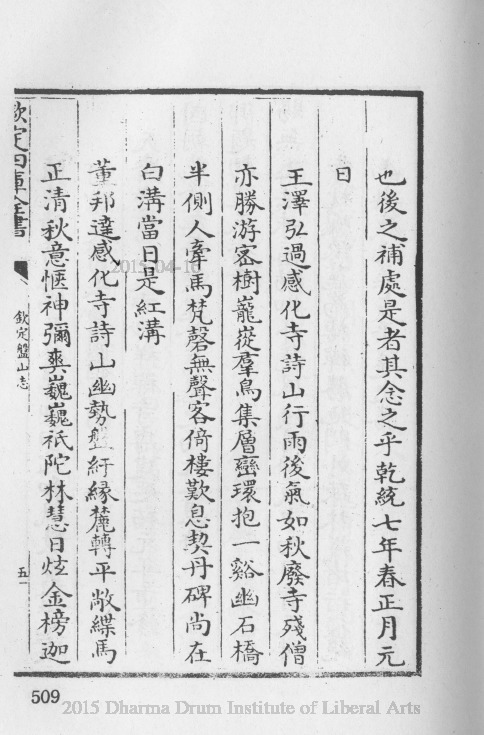 也後之補處是者其念之乎乾統七年春正月元
日
王澤弘過感化寺詩山行雨後氣如秋廢寺殘僧
亦勝游密樹巃嵸羣鳥集層巒環抱一谿幽石橋
半側人牽馬梵磬無聲客倚樓歎息契丹碑尚在
白溝當日是紅溝
董邦達感化寺詩山幽勢盤紆緣麓轉平敞緤馬
正清秋意愜神彌爽巍巍祇陀林慧日炫金榜迦
欽定四庫全書
欽定盤山志
五
509
2015-04-10
2015 Dharma Drum Institute of Liberal Arts